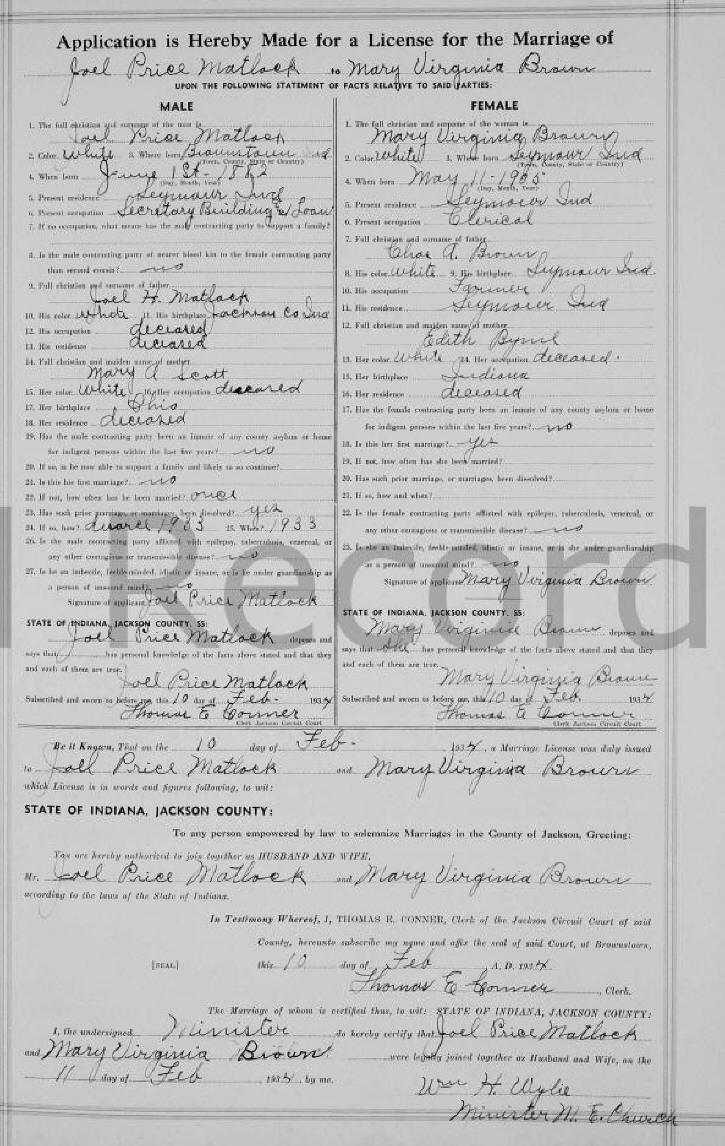 Application is Hereby Made for a License for the Marriage of
Joel Price Matlock to Mary Virginia Brown
UPON THE FOLLOWING STATEMENT OF FACTS RELATIVE TO SAID PARTIES:
MALE
1. The full christian and surname of the man is
Joel Price Matlock
2. Color White 3. Where born Brownstown Ind
(Town, County, State or Country)
4. When born June 1st - 1882
(Day, Month, Year)
5. Present residence Seymour Ind
6. Present occupation Secretary Building & Loan
7. If no occupation, what means has the male contracting party to support a family?
8. Is the male contracting party of nearer blood kin to the female contracting party
than second cousin? no
9. Full christian and surname of father
Joel H. Matlock
10. His color White 11. His birthplace Jackson Co Ind
12. His occupation deceased
13. His residence deceased
14. Full christian and maiden name of mother
Mary A Scott
15. Her color White 16. Her occupation deceased
17. Her birthplace Ohio
18. Her residence deceased
19. Has the male contracting party been an inmate of any county asylum or home
for indigent persons within the last five years? no
20. If so, is he now able to support a family and likely to so continue?
21. Is this his first marriage? no
22. If not, how often has he been married? once
23. Has such prior marriage, or marriages, been dissolved? yes
24. If so, how? divorce 1933 25. When? 1933
26. Is the male contracting party afflicted with epilepsy, tuberculosis, venereal, or
any other contagious or transmissible disease? no
27. Is he an imbecile, feeble-minded, idiotic or insane, or is he under guardianship as
a person of unsound mind? no
Signature of applicant Joel Price Matlock
STATE OF INDIANA, JACKSON COUNTY, SS:
Joel Price Matlock deposes and
says that has personal knowledge of the facts above stated and that they
and each of them are true.
Joel Price Matlock
Subscribed and sworn to before me, this 10 day of Feb. 1934
Thomas E Conner
Clerk Jackson Circuit Court
FEMALE
1. The full christian and surname of the woman is
Mary Virginia Brown
2. Color White 3. Where born Seymour Ind
(Town, County, State or Country)
4. When born May 11 - 1905
(Day, Month, Year)
5. Present residence Seymour Ind
6. Present occupation Clerical
7. Full christian and surname of father
Chas A. Brown
8. His color White 9. His birthplace Seymour Ind.
10. His occupation Farmer
11. His residence Seymour Ind
12. Full christian and maiden name of mother
Edith
13. Her color White 14. Her occupation deceased.
15. Her birthplace Indiana
16. Her residence deceased
17. Has the female contracting party been an inmate of any county asylum or home
for indigent persons within the last five years? no
18. Is this her first marriage? yes
19. If not, how often has she been married?
20. Has such prior marriage, or marriages, been dissolved?
21. If so, how and when?
22. Is the female contracting party afflicted with epilepsy, tuberculosis, venereal, or
any other contagious or transmissible disease? no
23. Is she an imbecile, feeble-minded, idiotic or insane, or is she under guardianship
as a person of unsound mind? no
Signature of applicant Mary Virginia Brown
STATE OF INDIANA, JACKSON COUNTY, SS:
Mary Virginia Brown deposes and
says that She has personal knowledge of the facts above stated and that they
and each of them are true.
Mary Virginia Brown
Subscribed and sworn to before me, this 10 day of Feb 1934
Thomas E Conner
Clerk Jackson Circuit Court
Record
Be it Known, That on the 10 day of Feb. 1934, a Marriage License was duly issued
to Joel Price Matlock and Mary Virginia Brown
which License is in words and figures following, to wit:
STATE OF INDIANA, JACKSON COUNTY:
To any person empowered by law to solemnize Marriages in the County of Jackson, Greeting:
You are hereby authorized to join together as HUSBAND AND WIFE,
Mr. Joel Price Matlock and Mary Virginia Brown
according to the laws of the State of Indiana.
In Testimony Whereof, I, THOMAS E. CONNER, Clerk of the Jackson Circuit Court of said
County, hereunto subscribe my name and affix the seal of said Court, at Brownstown,
[SEAL] this 10 day of Feb A. D. 1934.
Thomas E Conner, Clerk.
The Marriage of whom is certified thus, to wit: STATE OF INDIANA, JACKSON COUNTY:
I, the undersigned Minister do hereby certify that Joel Price Matlock
and Mary Virginia Brown were legally joined together as Husband and Wife, on the
11 day of Feb 1934, by me.
Wm H. Wylie
Minister M. E. Church